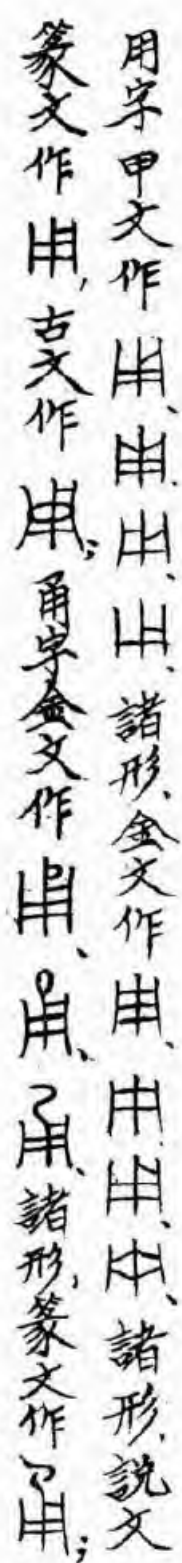 用字甲文作、、、、諸形、金文作、、、、諸形、說文
篆文作，古文作；甬字金文作、、、諸形，篆文作；